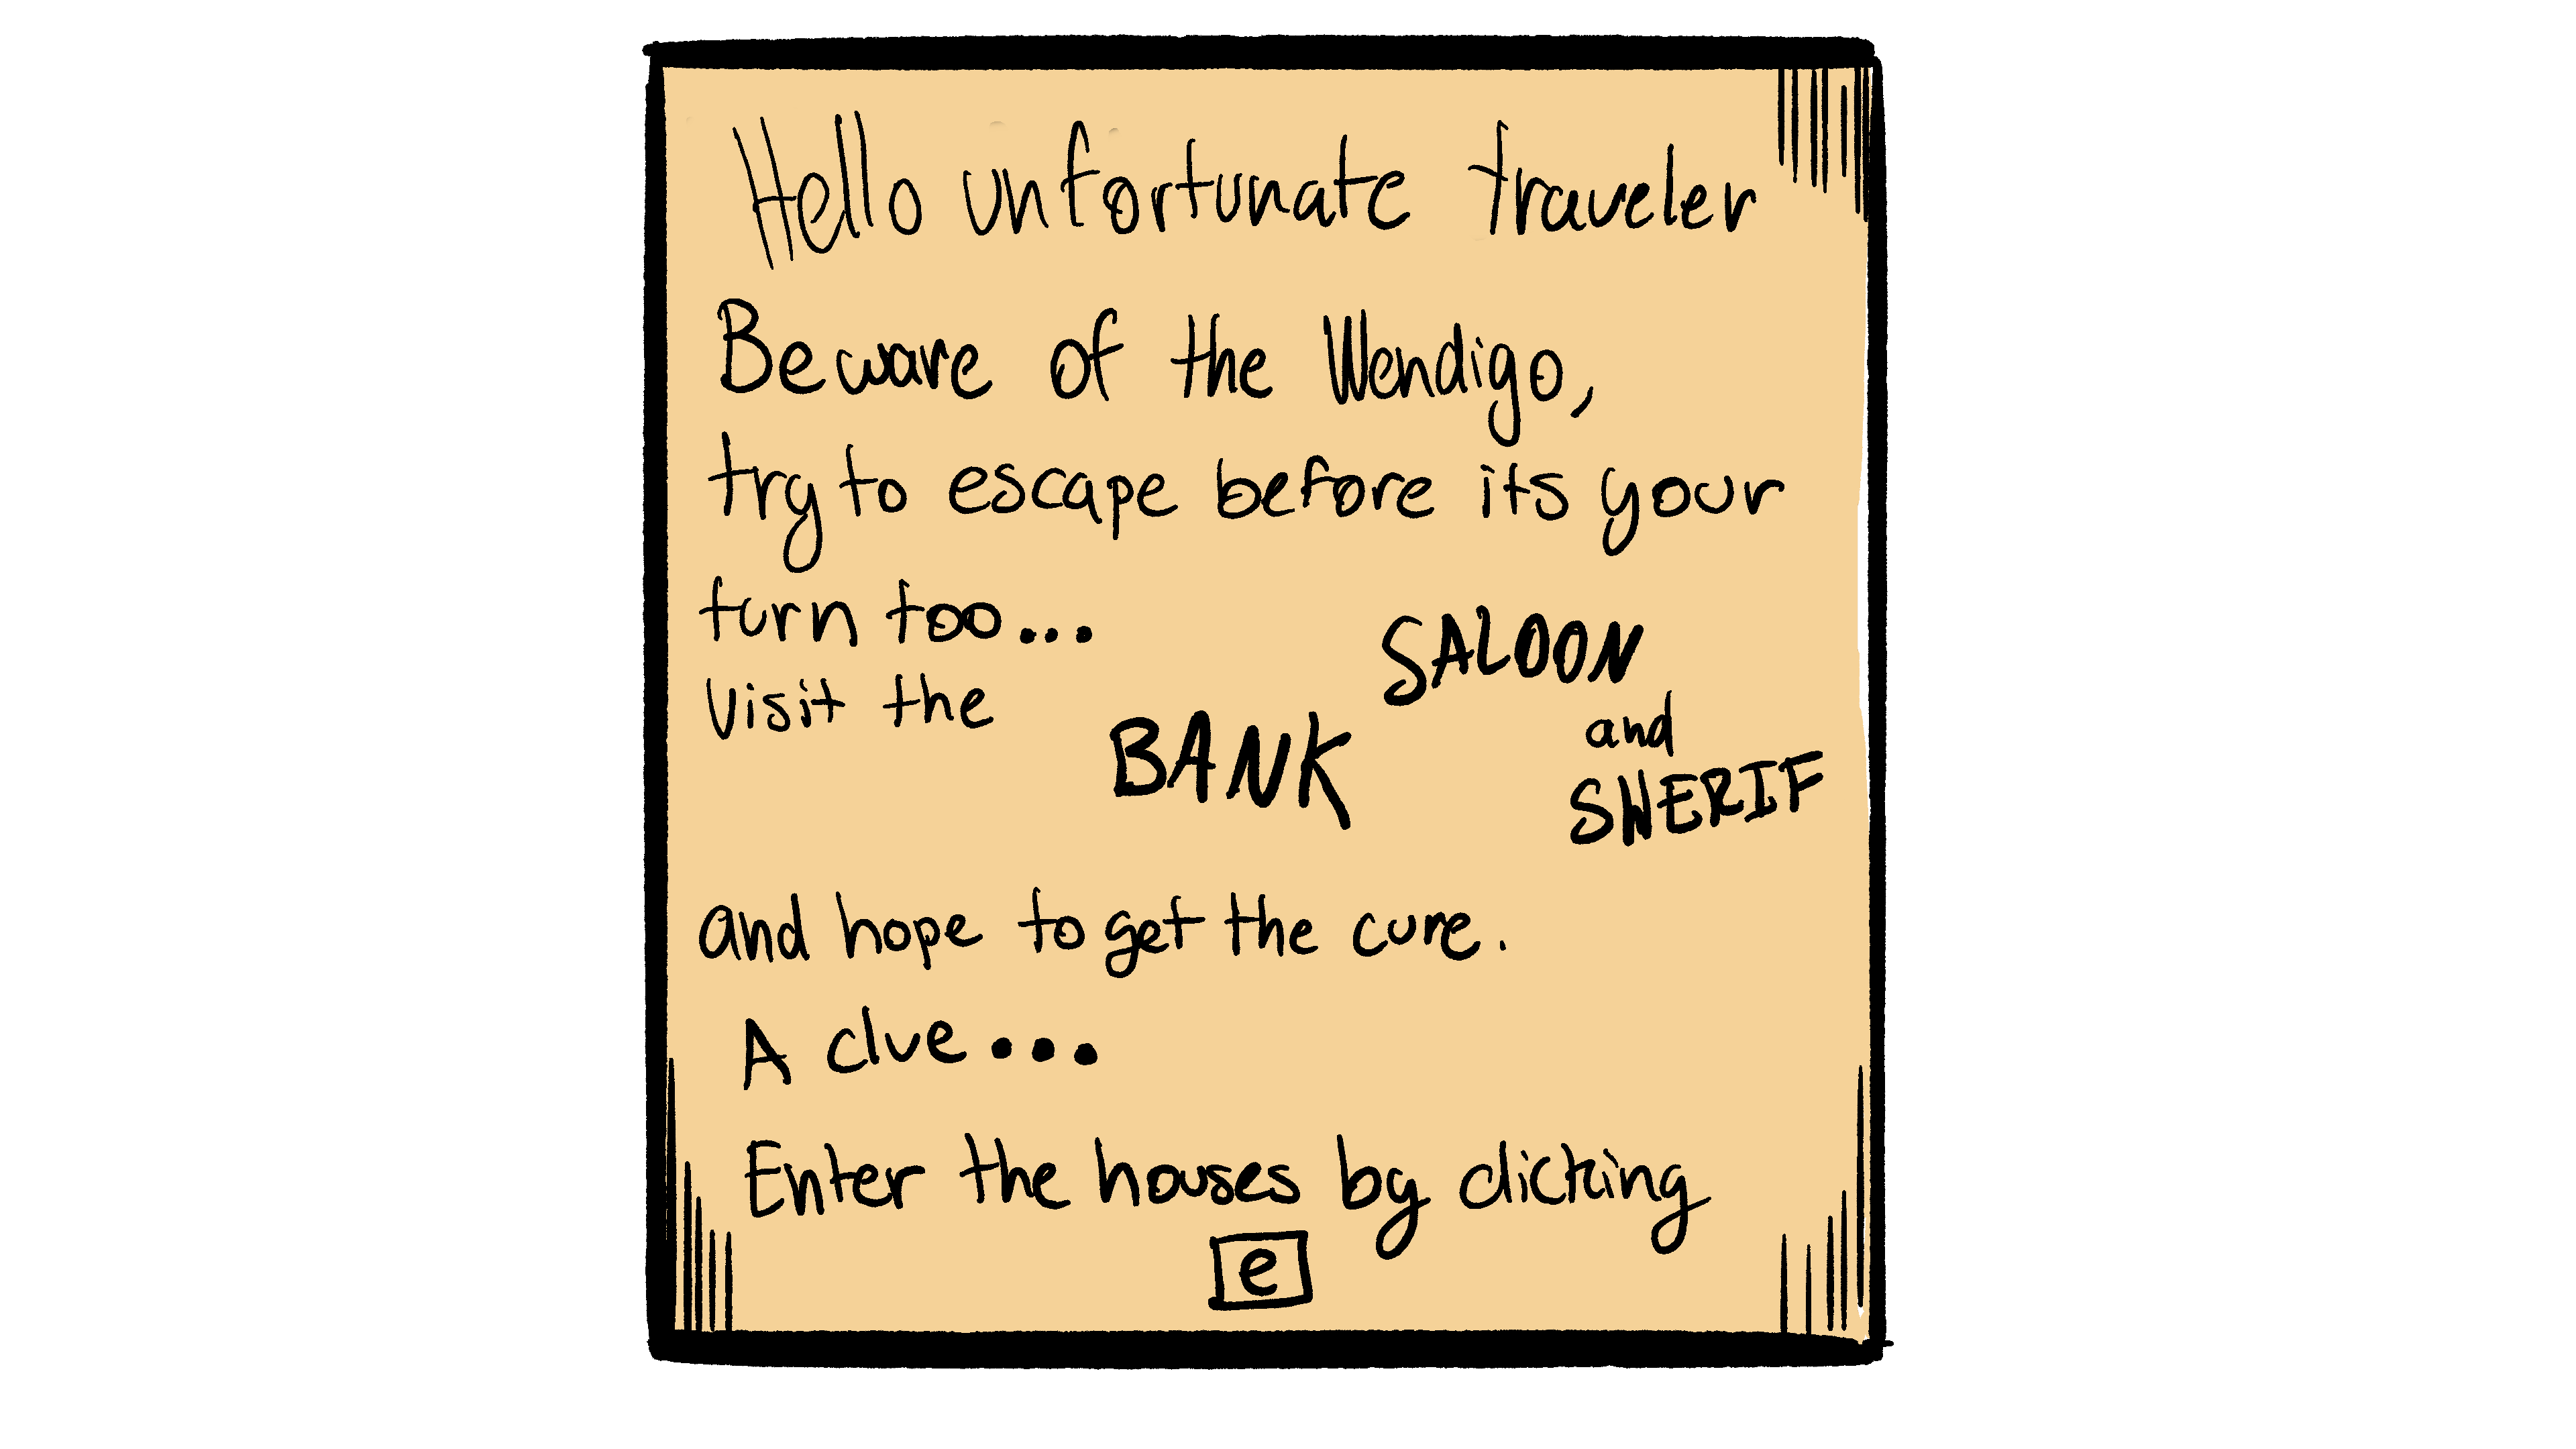 Hello unfortunate traveler
Beware of the Wendigo,
try to escape before its your
turn too...
visit the
BANK
SALOON
and
SHERIF
and hope to get the cure.
A clue...
Enter the houses by clicking
e